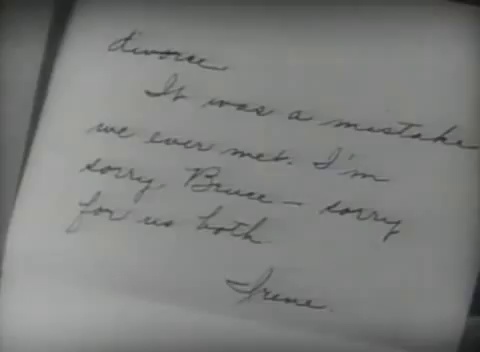 divorce.
It was a mistake
we ever met. I'm
sorry, Bruce — sorry
for us both
Irene.